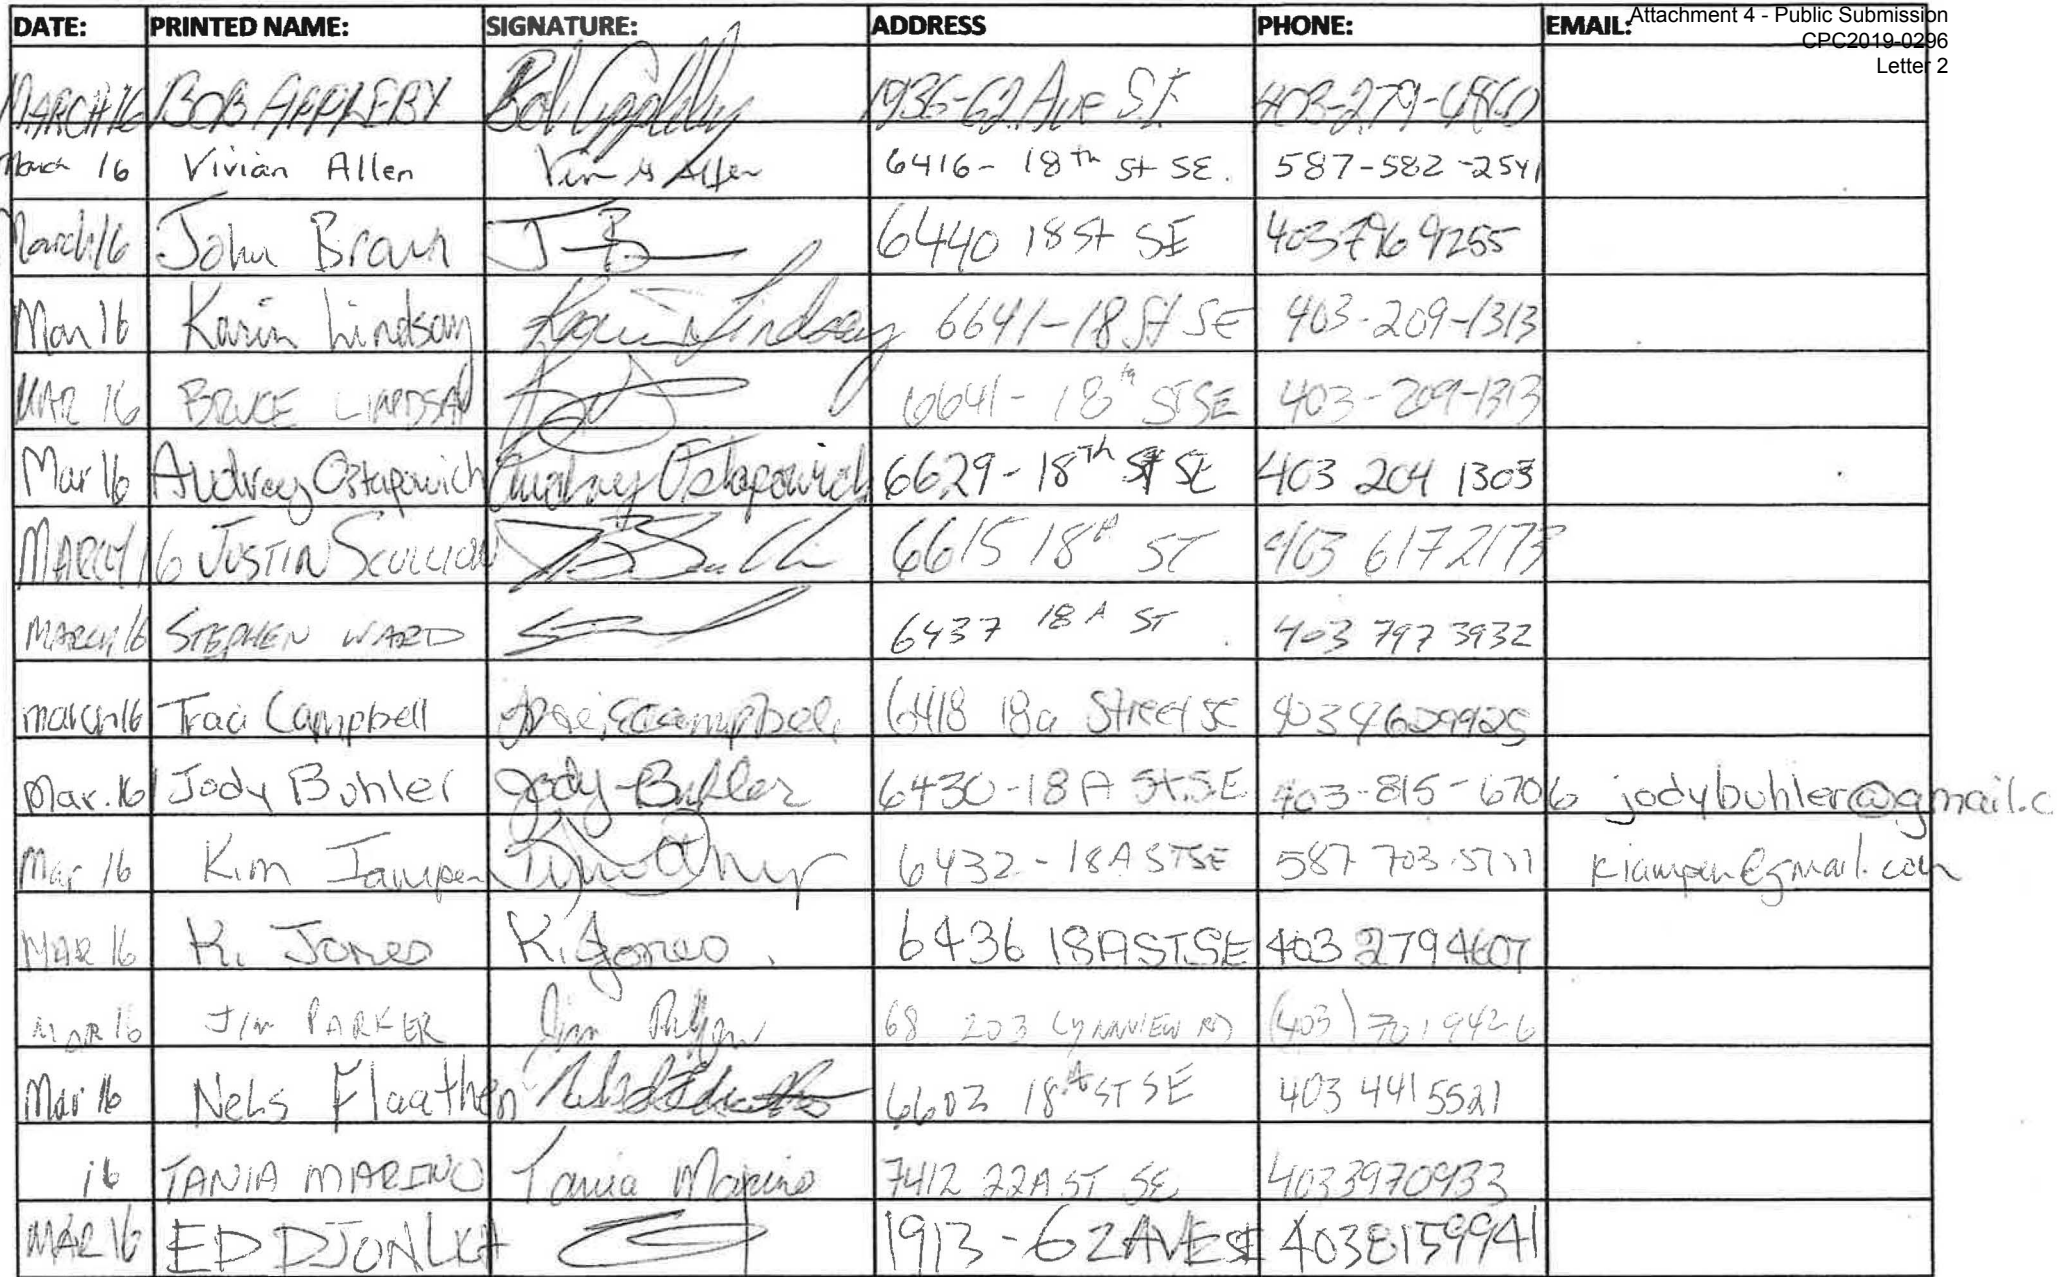 Attachment 4 - Public Submission
CPC2019-0296
Letter 2
DATE: PRINTED NAME: SIGNATURE: ADDRESS PHONE: EMAIL:
MARCH 16 BOB APPLEBY Bob Appleby 1936-62 AVE S.E. 403-279-4860
March 16 Vivian Allen 6416- 18th St SE. 587-582-2541
March 16 John Braun J B 6440 18 St SE 403 796 9255
Mar 16 Karin Lindsay Karin Lindsay 6641-18 St SE 403-209-1313
MAR 16 BRUCE LINDSAY 6641- 18th ST SE 403-209-1313
Mar 16 Audrey Ostapowich Audrey Ostapowich 6629-18Th St SE 403 204 1303
MARCH 16 JUSTIN SCULLION 6615 18A ST 403 617 2173
MARCH 16 STEPHEN WARD 6437 18 A ST 403 797 3932
march 16 Traci Campbell 6418 18a Street SE 403 4629925
Mar. 16 Jody Buhler Jody Buhler 6430-18A St. S.E 403-815-6706 jodybuhler@gmail.c
Mar 16 Kim Jampen 6432-18A ST SE 587 703 5711 kjampen@gmail.com
MAR 16 K. Jones K. Jones. 6436 18A ST. SE 403 279 4607
MAR 16 JIM PARKER Jim 68 203 LYNNVIEW RD (403) 701 9426
Mar 16 Nels Flaathen 6603 18A ST SE 403 441 5521
16 TANIA MARINO Tania Marino 7412 22A ST SE 4033970933
MAR 16 ED DJONLKA 1913-62 AVE SE 4038159941